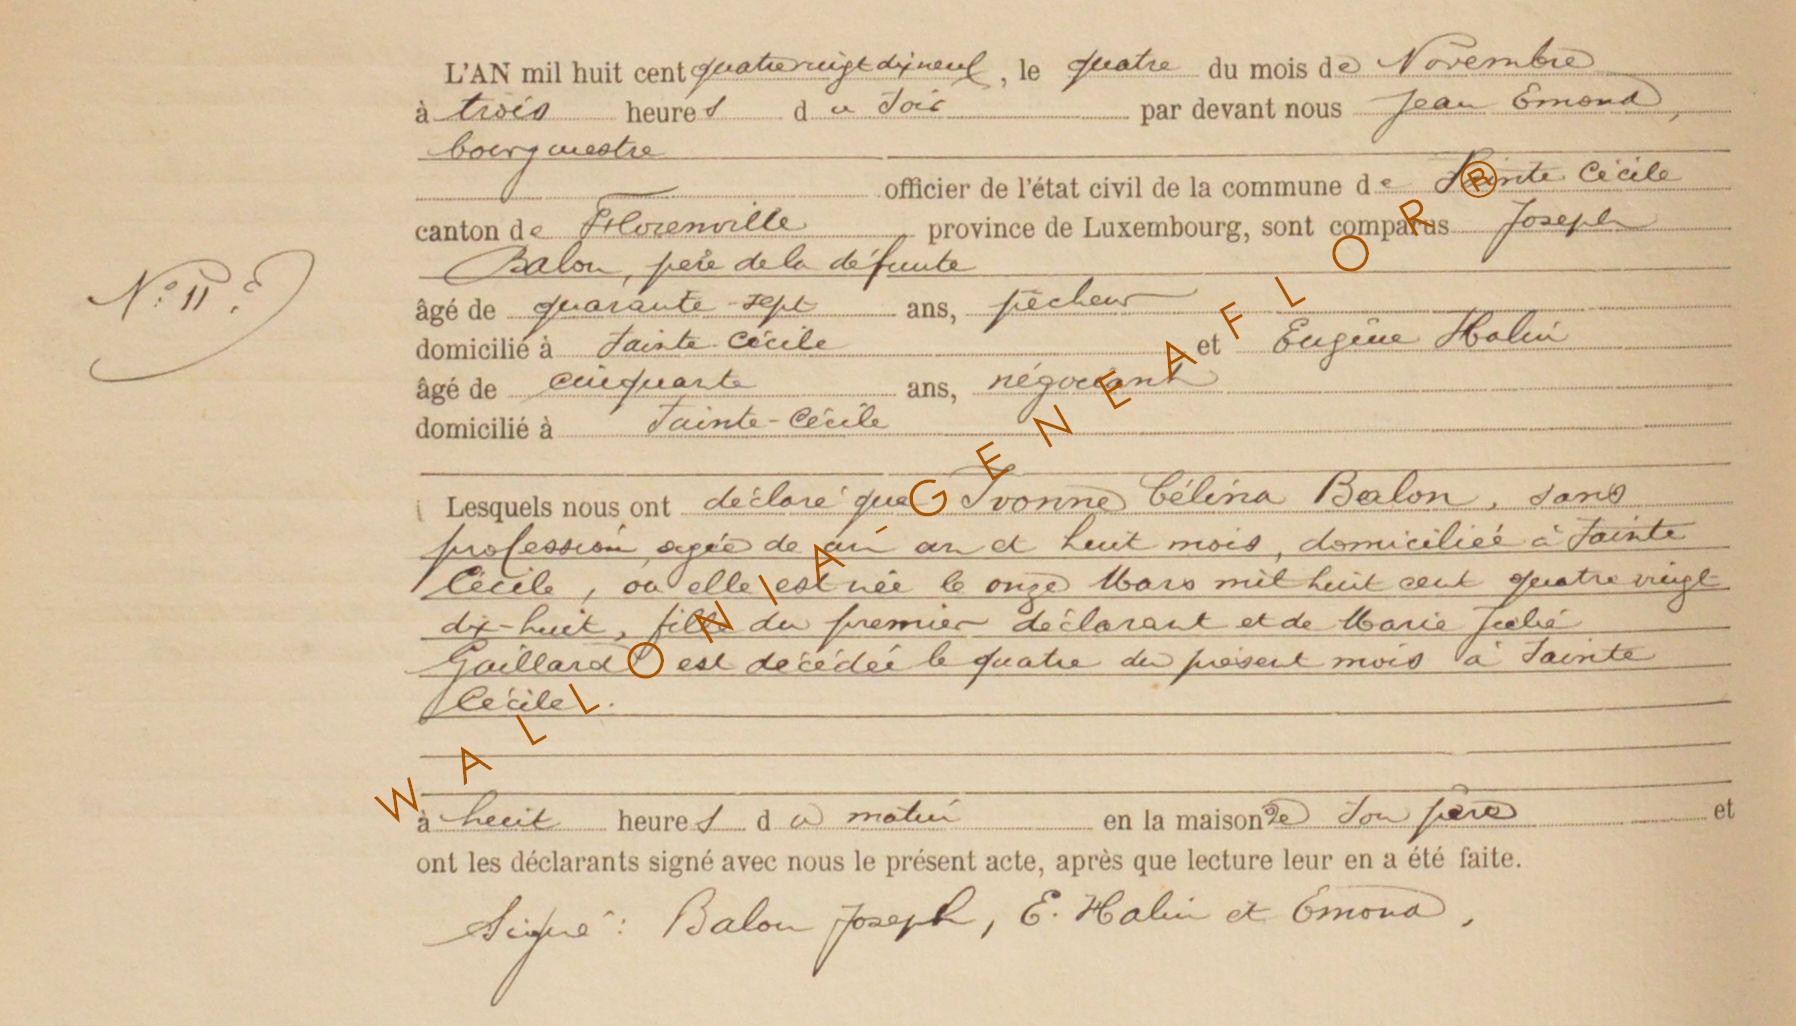 L'AN mil huit cent quatre vingt dix neuf, le quatre du mois de Novembre
à trois heures du soir par devant nous Jean Emond,
bourgmestre
officier de l'état civil de la commune de Sainte Cécile
canton de Florenville province de Luxembourg, sont comparus Joseph
Balon, père de la défunte
N° 11.
âgé de quarante-sept ans, pêcheur
domicilié à Sainte-Cécile et Eugène Halin
âgé de cinquante ans, négociant
domicilié à Sainte-Cécile
Lesquels nous ont déclaré que Yvonne Célina Balon, sans
profession, agée de un an et huit mois, domiciliée à Sainte
Cécile, où elle est née le onze Mars mil huit cent quatre vingt
dix-huit, fille du premier déclarant et de Marie Julie
Gaillard est décédée le quatre du présent mois à Sainte
Cécile.
à huit heures du matin en la maison de son père et
ont les déclarants signé avec nous le présent acte, après que lecture leur en a été faite.
Signé: Balon Joseph, E. Halin et Emond,
WALLONIA - GENEAFLOR ®